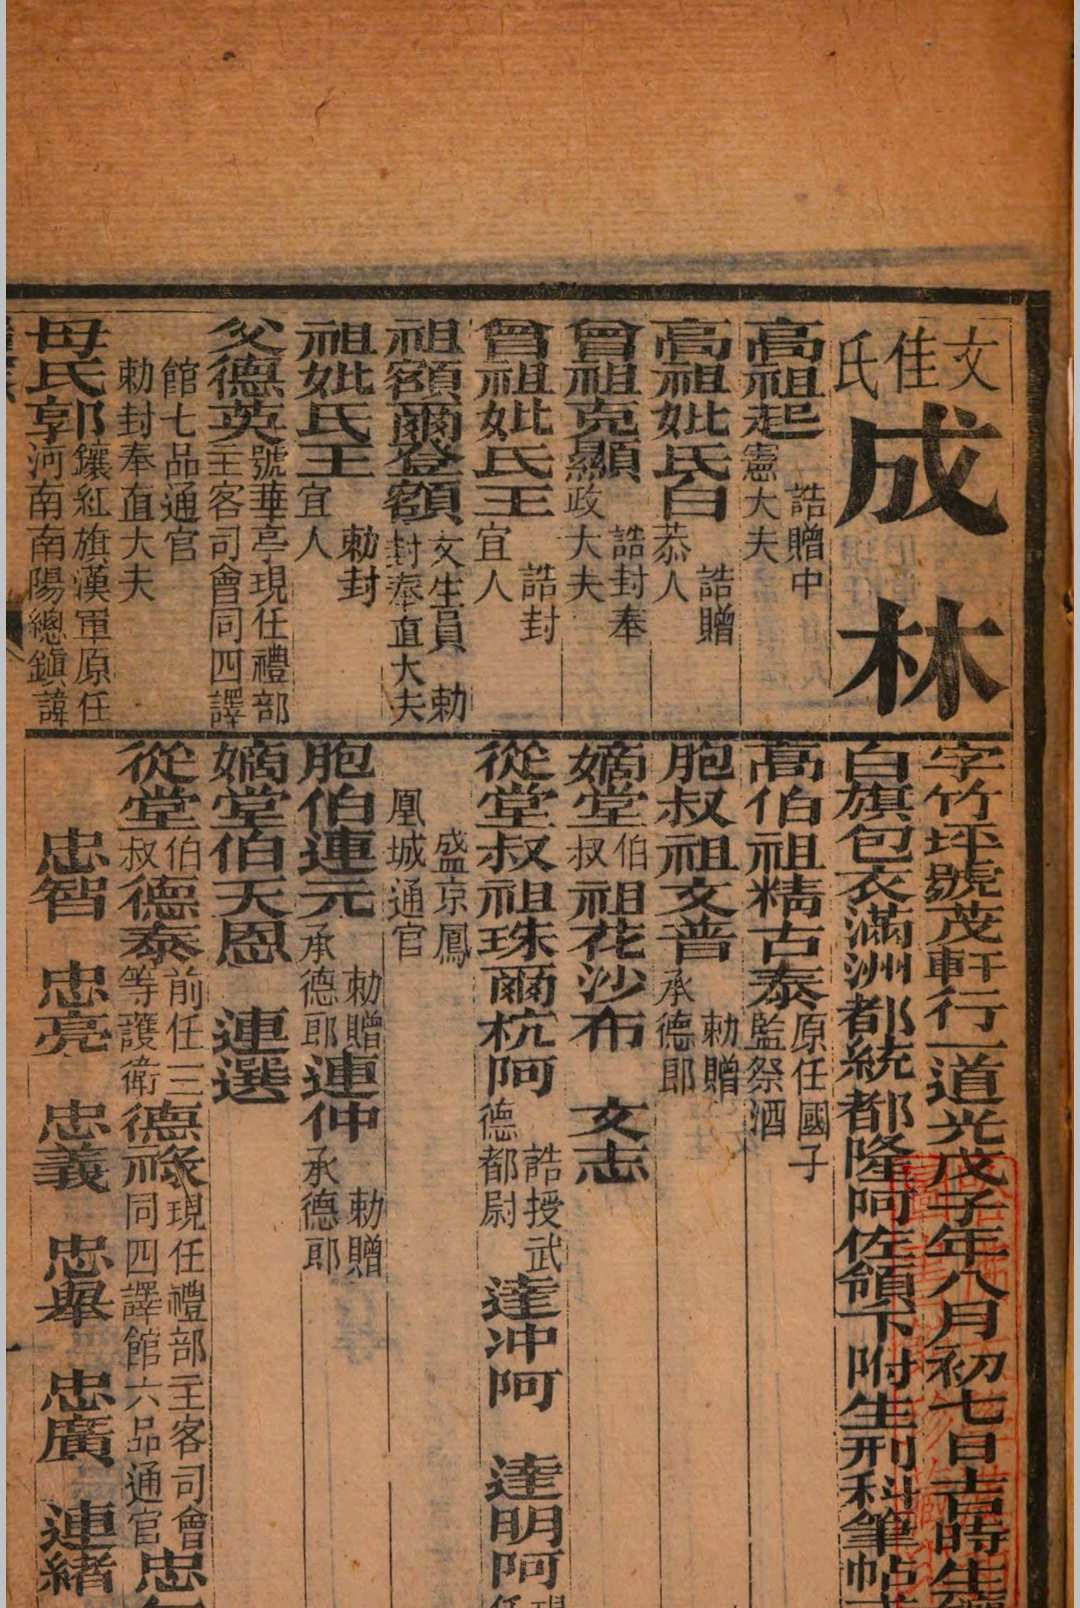 文佳氏
成林
字竹坪號茂軒行一道光戊子年八月初七日吉時生
白旗包衣滿洲都統都隆阿佐領下附生刑科筆帖
高祖起 誥贈中憲大夫
高祖妣氏白 誥贈恭人
曾祖克顯 誥封奉政大夫
曾祖妣氏王 誥封宜人
祖額爾登額 文生員 勅封奉直大夫
祖妣氏王 勅封宜人
父德英 號華亭現任禮部主客司會同四譯館七品通官 勅封奉直大夫
母氏郭 鑲紅旗漢軍原任河南南陽總鎮諱
高伯祖精古泰 原任國子監祭酒
胞叔祖文普 勅贈承德郎
嫡堂伯叔祖花沙布 文志
從堂叔祖珠爾杭阿 誥授武德都尉 達冲阿 達明阿 現任
盛京鳳凰城通官
胞伯連元 勅贈承德郎 連仲 勅贈承德郎
嫡堂伯天恩 連選
從堂伯叔德泰 前任三等護衛 德祿 現任禮部主客司會同四譯館六品通官 忠
忠智 忠亮 忠義 忠舉 忠廣 連緒